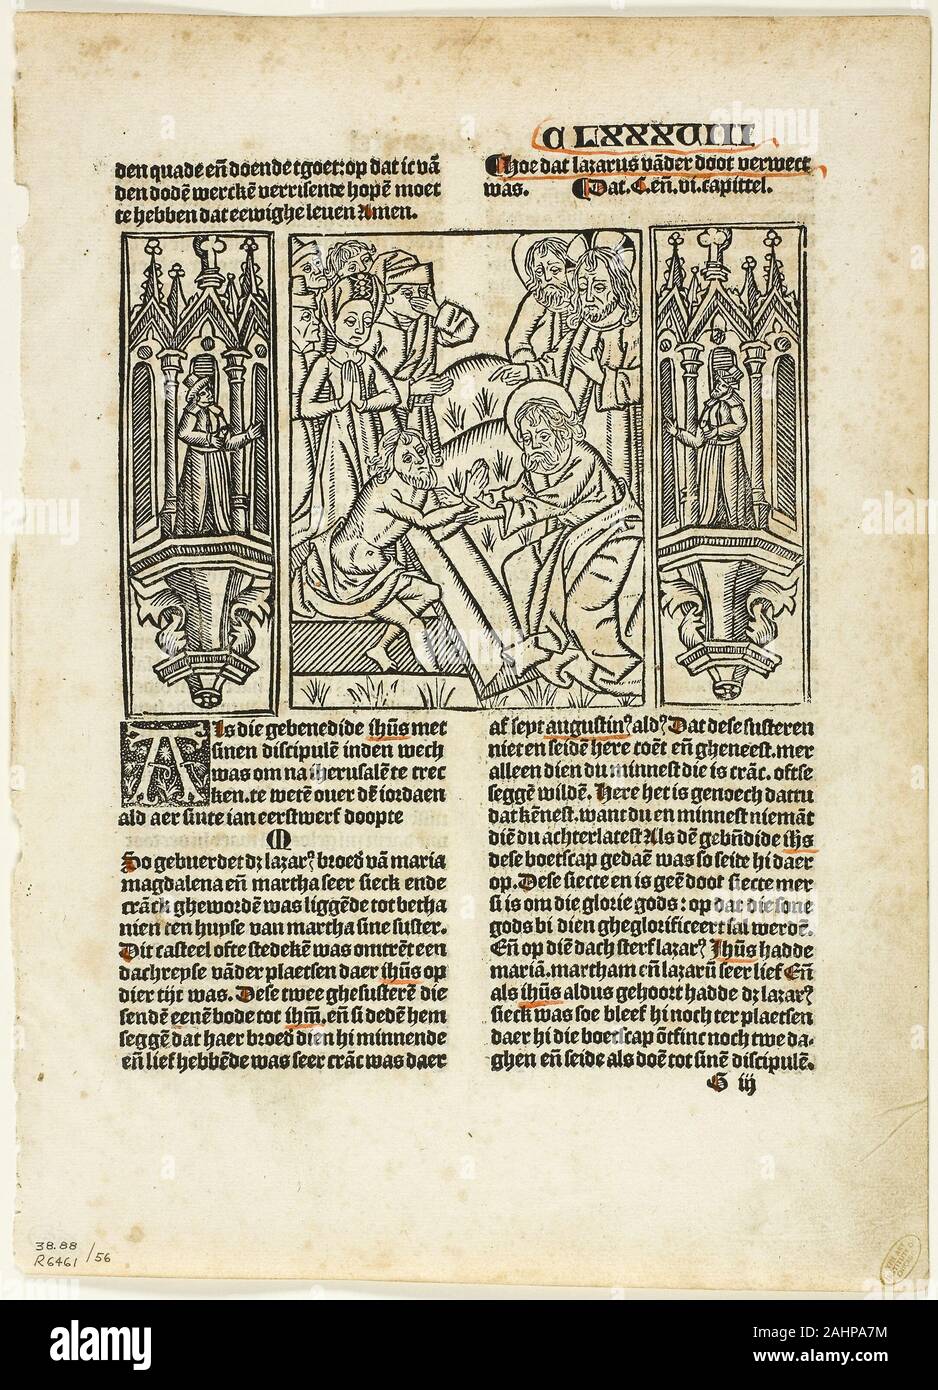 C LXXXVIII
den quade eñ doende tgoet: op dat ic vā
den dodē werckē verrisende hopē moet
te hebben dat eewighe leuen Amen.
¶hoe dat lazarus vāder doot verwect
was. ¶Dat. C. eñ. vi. capittel.
Als die gebenedide ihūs met
sinen discipulē inden wech
was om na iherusalē te trec
ken. te wetē ouer dē iordaen
ald aer sinte ian eerstwerf doopte
M
So gebuerdet dz lazarꝰ broed vā maria
magdalena eñ martha seer sieck ende
crāck ghewordē was liggēde tot betha
nien ten huyse van martha sine suster.
Dit casteel ofte stedekē was omtrēt een
dachreyse vāder plaetsen daer ihūs op
dier tijt was. Dese twee ghesusterē die
sendē eenē bode tot ihm̄. eñ si dedē hem
seggē dat haer broed dien hi minnende
eñ lief hebbēde was seer crāc was daer
af seyt augustinꝰ aldꝰ Dat dese susteren
niet en seidē here coēt eñ gheneest. mer
alleen dien du minnest die is crāc. oftse
seggē wildē. Here het is genoech dattu
dat kēnest. want du en minnest niemāt
diē du achterlatest Als dē gebñdide ihs
dese boetscap gedaē was so seide hi daer
op. Dese siecte en is geē doot siecte mer
si is om die glorie gods: op dat die sone
gods bi dien gheglorificeert sal werdē.
Eñ op diē dach sterf lazarꝰ Ihūs hadde
mariā. martham eñ lazarū seer lief Eñ
als ihūs aldus gehoort hadde dz lazarꝰ
sieck was soe bleef hi noch ter plaetsen
daer hi die boetscap ōtfinc noch twe da-
ghen eñ seide als doē tot sinē discipulē.
G iij
38.88
R6461 /56
alamy
Image ID: 2AHPA7M
www.alamy.com